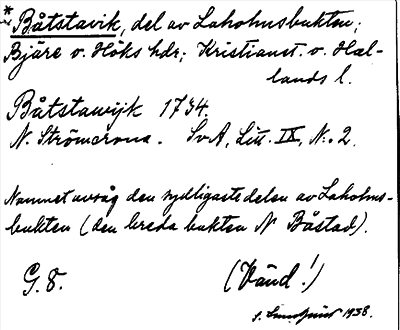 * Båtstavik, del av Laholmsbukten;
Bjäre o. Höks hdr; Kristianst. o. Hal-
lands l.
Båtstawijk 1794.
N. Strömcrona. SvA, Litt. IX, N:o 2.
Namnet avsåg den sydligaste delen av Laholms-
bukten (den breda bukten N Båstad).
G. 8. (Vänd!)
1938.